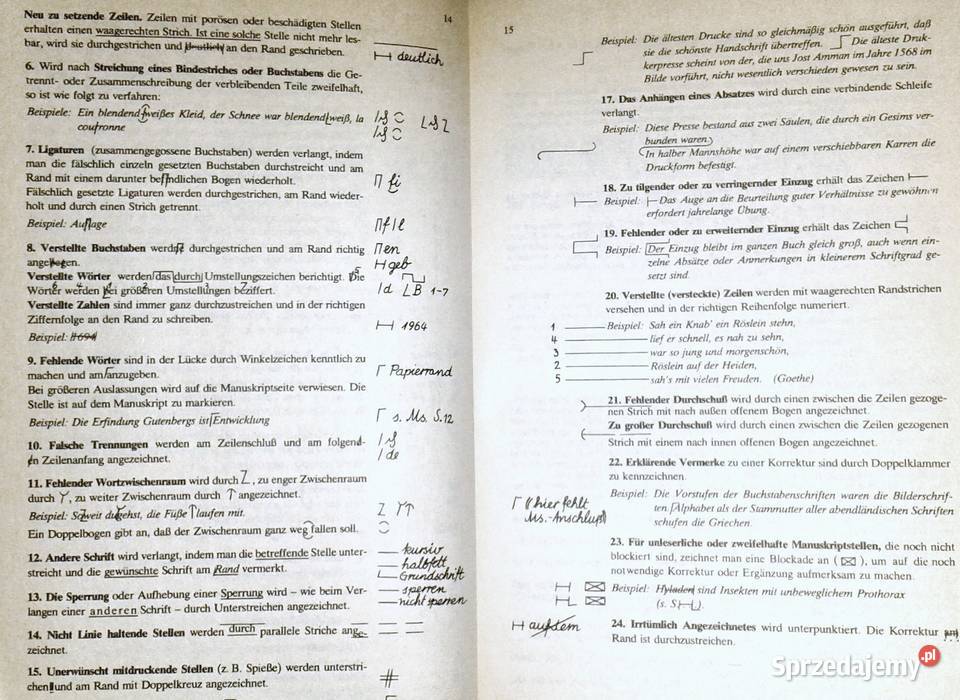 14
Neu zu setzende Zeilen. Zeilen mit porösen oder beschädigten Stellen
erhalten einen waagerechten Strich. Ist eine solche Stelle nicht mehr les-
bar, wird sie durchgestrichen und deutlich an den Rand geschrieben.
deutlich
6. Wird nach Streichung eines Bindestriches oder Buchstabens die Ge-
trennt- oder Zusammenschreibung der verbleibenden Teile zweifelhaft,
so ist wie folgt zu verfahren:
Beispiele: Ein blendend-weißes Kleid, der Schnee war blendend weiß, la
coutronne
7. Ligaturen (zusammengegossene Buchstaben) werden verlangt, indem
man die fälschlich einzeln gesetzten Buchstaben durchstreicht und am
Rand mit einem darunter befindlichen Bogen wiederholt.
fi
Fälschlich gesetzte Ligaturen werden durchgestrichen, am Rand wieder-
holt und durch einen Strich getrennt.
Beispiel: Auflage
f l
8. Verstellte Buchstaben werden durchgestrichen und am Rand richtig
en
angegeben.
geb
Verstellte Wörter werden das durch Umstellungszeichen berichtigt. Die
Wörter werden bei größeren Umstellungen beziffert.
1-7
Verstellte Zahlen sind immer ganz durchzustreichen und in der richtigen
Ziffernfolge an den Rand zu schreiben.
1964
Beispiel: 1694
9. Fehlende Wörter sind in der Lücke durch Winkelzeichen kenntlich zu
machen und am anzugeben.
Papierrand
Bei größeren Auslassungen wird auf die Manuskriptseite verwiesen. Die
Stelle ist auf dem Manuskript zu markieren.
Beispiel: Die Erfindung Gutenbergs ist Entwicklung
s. Ms. S. 12
10. Falsche Trennungen werden am Zeilenschluß und am folgend-
en Zeilenanfang angezeichnet.
de
11. Fehlender Wortzwischenraum wird durch Z, zu enger Zwischenraum
durch Y, zu weiter Zwischenraum durch ↑ angezeichnet.
Beispiel: Soweit du gehst, die Füße laufen mit.
Ein Doppelbogen gibt an, daß der Zwischenraum ganz weg fallen soll.
12. Andere Schrift wird verlangt, indem man die betreffende Stelle unter-
streicht und die gewünschte Schrift am Rand vermerkt.
kursiv
halbfett
Grundschrift
13. Die Sperrung oder Aufhebung einer Sperrung wird – wie beim Ver-
langen einer anderen Schrift – durch Unterstreichen angezeichnet.
sperren
nicht sperren
14. Nicht Linie haltende Stellen werden durch parallele Striche ange-
zeichnet.
15. Unerwünscht mitdruckende Stellen (z. B. Spieße) werden unterstri-
chen und am Rand mit Doppelkreuz angezeichnet.
#
15
Beispiel: Die ältesten Drucke sind so gleichmäßig schön ausgeführt, daß
sie die schönste Handschrift übertreffen. Die älteste Druk-
kerpresse scheint von der, die uns Jost Amman im Jahre 1568 im
Bilde vorführt, nicht wesentlich verschieden gewesen zu sein.
17. Das Anhängen eines Absatzes wird durch eine verbindende Schleife
verlangt.
Beispiel: Diese Presse bestand aus zwei Säulen, die durch ein Gesims ver-
bunden waren.
In halber Mannshöhe war auf einem verschiebbaren Karren die
Druckform befestigt.
18. Zu tilgender oder zu verringernder Einzug erhält das Zeichen
Beispiel: Das Auge an die Beurteilung guter Verhältnisse zu gewöhnen
erfordert jahrelange Übung.
19. Fehlender oder zu erweiternder Einzug erhält das Zeichen
Beispiel: Der Einzug bleibt im ganzen Buch gleich groß, auch wenn ein-
zelne Absätze oder Anmerkungen in kleinerem Schriftgrad ge-
setzt sind.
20. Verstellte (versteckte) Zeilen werden mit waagerechten Randstrichen
versehen und in der richtigen Reihenfolge numeriert.
1 Beispiel: Sah ein Knab' ein Röslein stehn,
4 lief er schnell, es nah zu sehn,
3 war so jung und morgenschön,
2 Röslein auf der Heiden,
5 sah's mit vielen Freuden. (Goethe)
21. Fehlender Durchschuß wird durch einen zwischen die Zeilen gezoge-
nen Strich mit nach außen offenem Bogen angezeichnet.
Zu großer Durchschuß wird durch einen zwischen die Zeilen gezogenen
Strich mit einem nach innen offenen Bogen angezeichnet.
22. Erklärende Vermerke zu einer Korrektur sind durch Doppelklammer
zu kennzeichnen.
Beispiel: Die Vorstufen der Buchstabenschriften waren die Bilderschrif-
ten. Alphabet als der Stammutter aller abendländischen Schriften
schufen die Griechen.
((hier fehlt
Ms.-Anschluß))
23. Für unleserliche oder zweifelhafte Manuskriptstellen, die noch nicht
blockiert sind, zeichnet man eine Blockade an ( ), um auf die noch
notwendige Korrektur oder Ergänzung aufmerksam zu machen.
Beispiel: Hyladen sind Insekten mit unbeweglichem Prothorax
(s. S ).
24. Irrtümlich Angezeichnetes wird unterpunktiert. Die Korrektur am
Rand ist durchzustreichen.
auf dem
Sprzedajemy.pl